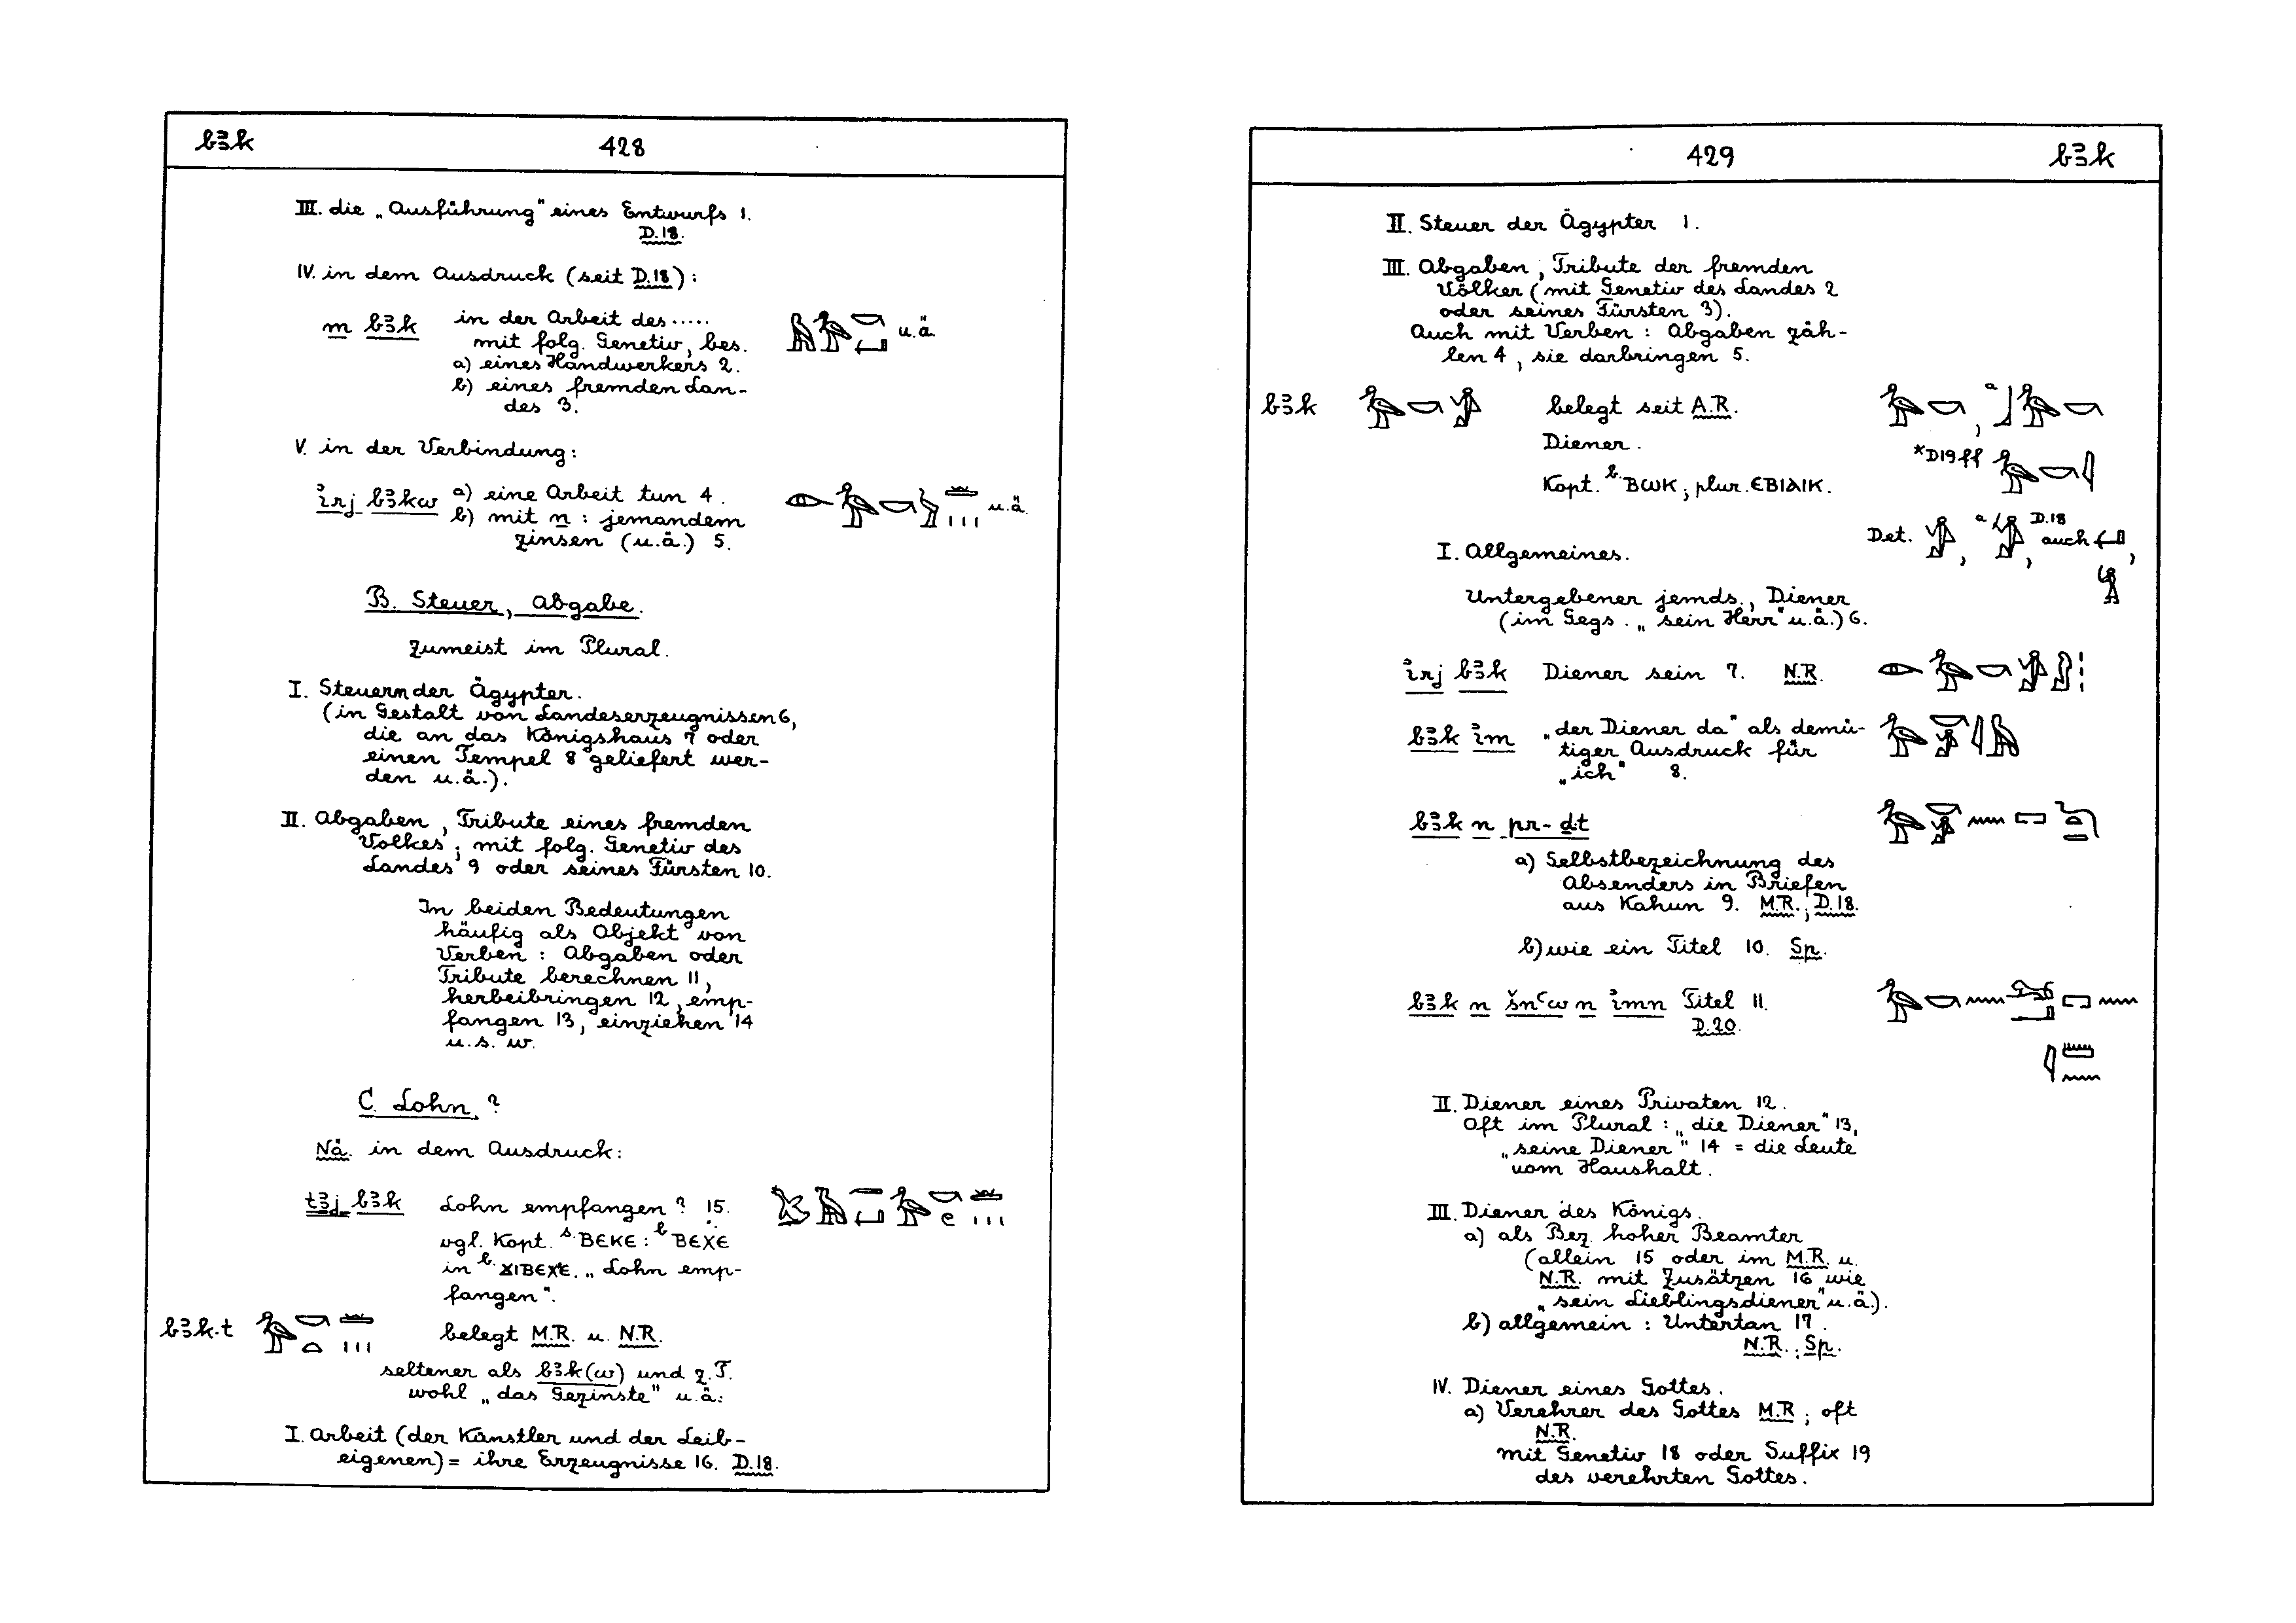 bꜣk 428
III. die „Ausführung" eines Entwurfs 1.
D.18.
IV. in dem Ausdruck (seit D.18):
m bꜣk in der Arbeit des..... u.ä.
mit folg. Genetiv, bes.
a) eines Handwerkers 2.
b) eines fremden Lan-
des 3.
V. in der Verbindung:
ı͗rj bꜣkw a) eine Arbeit tun 4. u.ä.
b) mit n : jemandem
zinsen (u.ä.) 5.
B. Steuer, Abgabe.
Zumeist im Plural.
I. Steuern der Ägypter.
(in Gestalt von Landeserzeugnissen 6,
die an das Königshaus 7 oder
einen Tempel 8 geliefert wer-
den u.ä.).
II. Abgaben, Tribute eines fremden
Volkes; mit folg. Genetiv des
Landes 9 oder seines Fürsten 10.
In beiden Bedeutungen
häufig als Objekt von
Verben : Abgaben oder
Tribute berechnen 11,
herbeibringen 12, emp-
fangen 13, einziehen 14
u.s.w.
C. Lohn ?
Nä. in dem Ausdruck:
ṯꜣj bꜣk Lohn empfangen ? 15.
vgl. Kopt. s. ⲂⲈⲔⲈ : b. ⲂⲈⲬⲈ
in b. ϪⲒⲂⲈⲬⲈ. „Lohn emp-
fangen".
bꜣk.t belegt M.R. u. N.R.
seltener als bꜣk(w) und z.T.
wohl „das Gezinste" u.ä.:
I. Arbeit (der Künstler und der Leib-
eigenen) = ihre Erzeugnisse 16. D.18.
429 bꜣk
II. Steuer der Ägypter 1.
III. Abgaben, Tribute der fremden
Völker (mit Genetiv des Landes 2
oder seines Fürsten 3).
Auch mit Verben : Abgaben zäh-
len 4, sie darbringen 5.
bꜣk belegt seit A.R. , a
Diener.
*D19ff
Kopt. b. ⲂⲰⲔ ; plur. ⲈⲂⲒⲀⲒⲔ.
Det. , a , D.18 auch ,
I. Allgemeines.
Untergebener jemds., Diener
(im Gegs. „sein Herr" u.ä.) 6.
ı͗rj bꜣk Diener sein 7. N.R.
bꜣk ı͗m „der Diener da" als demü-
tiger Ausdruck für
„ich" 8.
bꜣk n pr-ḏt
a) Selbstbezeichnung des
Absenders in Briefen
aus Kahun 9. M.R.; D.18.
b) wie ein Titel 10. Sp.
bꜣk n šnꜥw n ı͗mn Titel 11.
D.20.
II. Diener eines Privaten 12.
Oft im Plural : „die Diener" 13,
„seine Diener" 14 = die Leute
vom Haushalt.
III. Diener des Königs.
a) als Bez. hoher Beamter
(allein 15 oder im M.R. u.
N.R. mit Zusätzen 16 wie
„sein Lieblingsdiener" u.ä.).
b) allgemein : Untertan 17.
N.R.; Sp.
IV. Diener eines Gottes.
a) Verehrer des Gottes M.R.; oft
N.R.
mit Genetiv 18 oder Suffix 19
des verehrten Gottes.